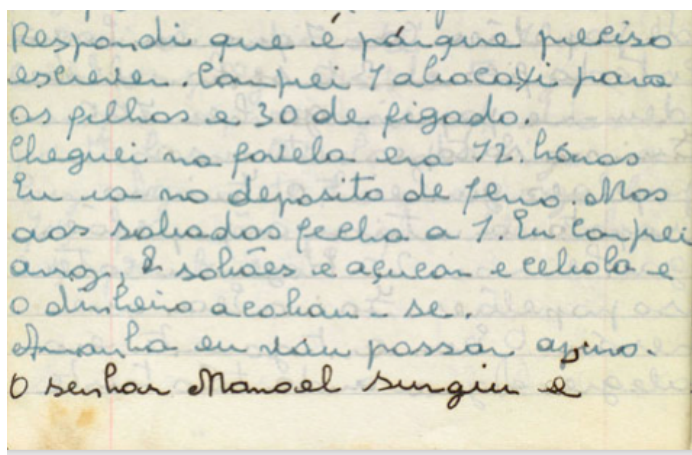 Respondi que é pórque preciso
escrever. Conprei 1 abacaxi para
os filhos e 30 de figado.
Cheguei na favela era 12. hóras
Eu ia no deposito de ferro. Mas
aos sabados fecha a 1. Eu conprei
arroz, 2 sabães e açucar e cebola e
o dinheiro acabou - se.
Amanhã eu vou passar apuro.
O senhor Manoel surgiu e